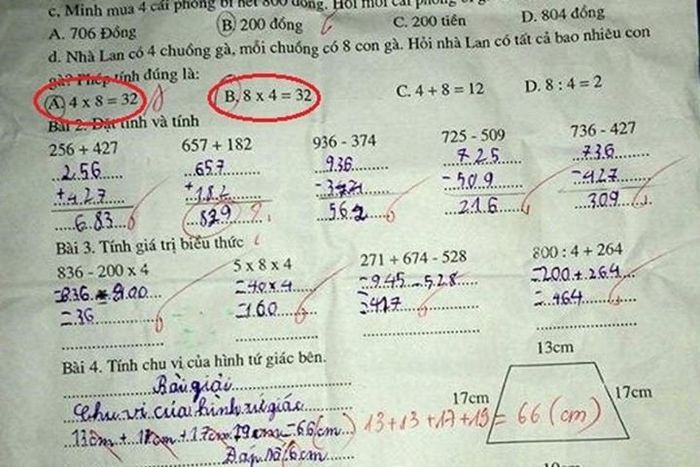 c. Minh mua 4 cái phong bì hết 800 đồng. Hỏi mỗi cái phong bì
A. 706 Đồng B. 200 đồng C. 200 tiền D. 804 đồng
d. Nhà Lan có 4 chuồng gà, mỗi chuồng có 8 con gà. Hỏi nhà Lan có tất cả bao nhiêu con
gà? Phép tính đúng là:
A. 4 x 8 = 32 B. 8 x 4 = 32 C. 4 + 8 = 12 D. 8 : 4 = 2
Bài 2. Đặt tính và tính
256 + 427 657 + 182 936 - 374 725 - 509 736 - 427
256 657 936 725 736
+427 +182 - 509 - 427
683 829 562 216 309
Bài 3. Tính giá trị biểu thức
836 - 200 x 4 5 x 8 x 4 271 + 674 - 528 800 : 4 + 264
=836 - 800 =40 x 4 =945 - 528 =200 + 264
=36 =160 =417 =464
Bài 4. Tính chu vi của hình tứ giác bên.
13cm
Bài giải
Chu vi của hình tứ giác
17cm 17cm
=66(cm) 13+13+17+19 = 66 (cm)
Đáp số